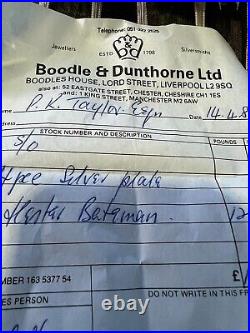 Telephone: 051-
Jewellers ESTD 1798 Silversmiths
Boodle & Dunthorne Ltd
BOODLES HOUSE, LORD STREET, LIVERPOOL L2 9SQ
also at: 52 EASTGATE STREET, CHESTER, CHESHIRE CH1 1ES
and: 1 KING STREET, MANCHESTER M2 6AW
P. K. Taylor Esq 14.4.8
STOCK NUMBER AND DESCRIPTION POUNDS
S/O
Silver plate
Hester Bateman. 12
£
MBER 163 5377 54
S PERSON
DO NOT WRITE IN THIS